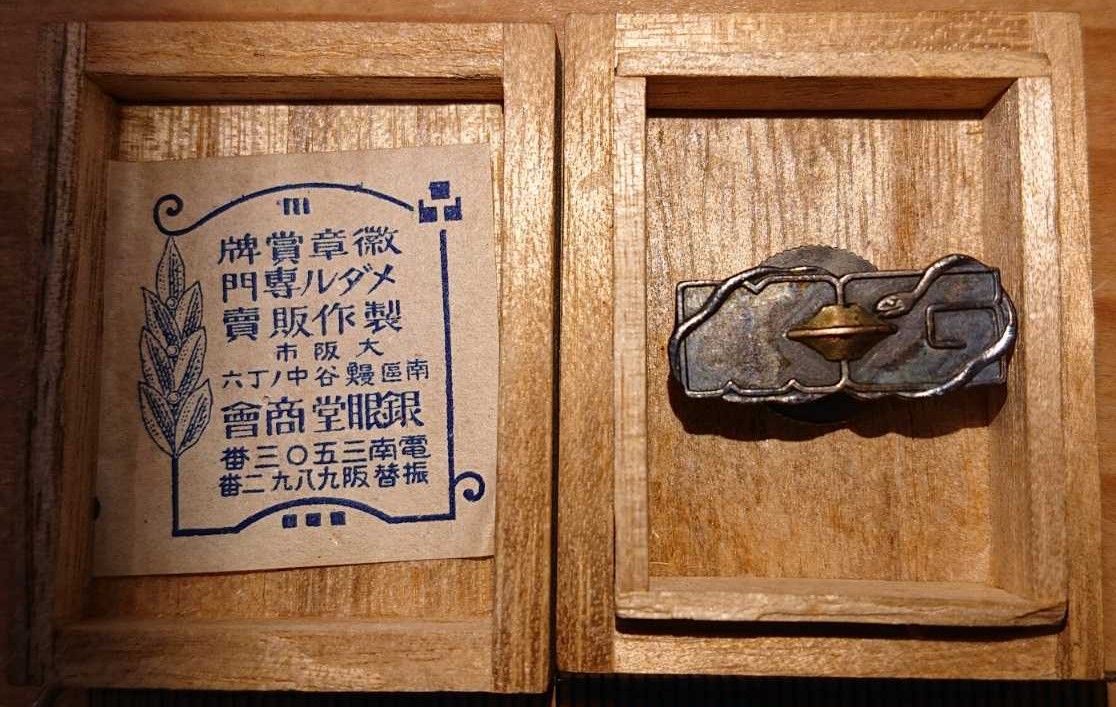 徽章賞牌
メダル專門
製作販賣
大阪市
南區鰻谷中ノ丁六
銀眼堂商會
電南三五〇三番
振替阪九八九二番